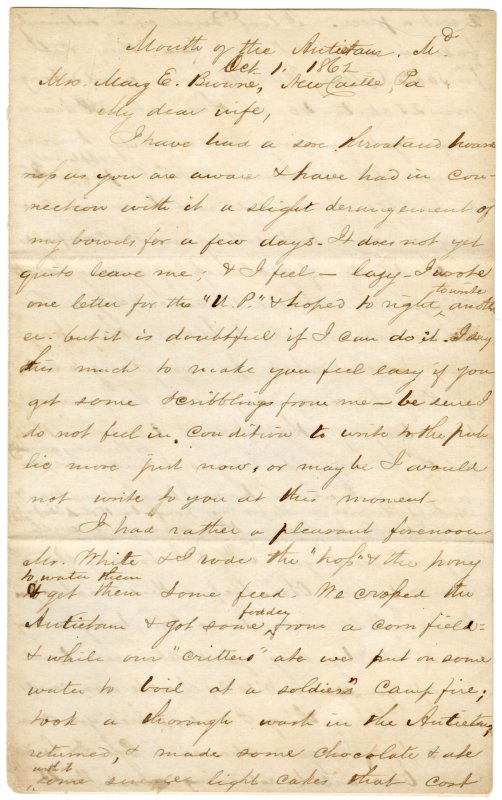 Mouth of the Antietam. Md
Oct 1. 1862
Mrs. Mary E. Browne, New Castle, Pa
My dear wife,
I have had a sore throat and hoarse
ness as you are aware & have had in con-
nection with it a slight derangement of
my bowels for a few days - It does not yet
quite leave me; & I feel - lazy - I wrote
one letter for the "U.P." & hoped to right to write anoth
er. but it is doubtful if I can do it. I say
this much to make you feel easy if you
get some scribblings from me - be sure I
do not feel in condition to write to the pub
lic more just now, or may be I would
not write to you at this moment -
I had rather a pleasant forenoon
Mr. White & I rode the "hop" & the pony
to water them
& get them some feed. We crossed the
Antietam & got some fodder from a corn field -
& while our "critters" ate we put on some
water to boil at a soldier's camp fire;
took a thorough wash in the Antietam,
returned, & made some chocolate & ate
with it
some light cakes that cost